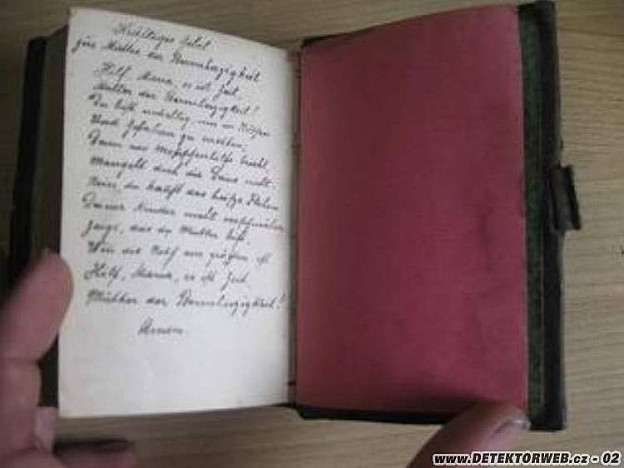 Kräftiges Gebet
zur Mutter der Barmherzigkeit
Hilf Maria, es ist Zeit
Mutter der Barmherzigkeit!
Du bist mächtig, uns in Nöthen
Und Gefahren zu erretten;
Denn wo Menschenhilfe bricht,
Mangelt doch die Deine nicht
Nein, du kannst das heiße Flehen
Deiner Kinder nicht verschmähen
Zeige, das du Mutter bist,
Wo die Noth am größten ist
Hilf, Maria, es ist Zeit
Mutter der Barmherzigkeit!
Amen.
www.DETEKTORWEB.cz - 02